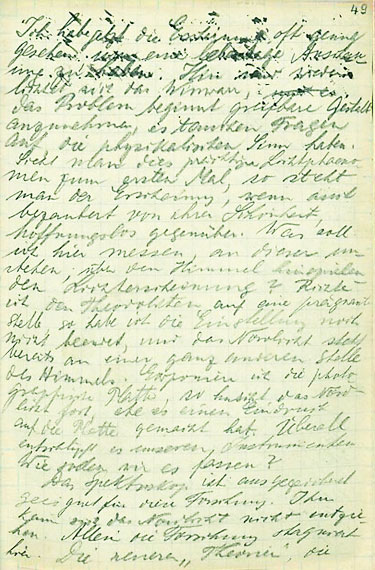 49
Ich habe jetzt die Erscheinung oft genug
gesehen, um eine lebendige Anschau
ung zu haben. Nun
lichtet sich das Wirrwarr,
das Problem beginnt greifbare Gestalt
anzunehmen, es tauchen Fragen
auf, die physikalischen Sinn haben.
Sieht man dies prächtige Lichtphäno
men zum ersten Mal, so steht
man der Erscheinung, wenn auch
bezaubert von ihrer Schönheit,
hoffnungslos gegenüber. Was soll
ich hier messen an dieser un
steten, über den Himmel hinspielen
den Lichterscheinung? Richte
ich den Theodoliten auf eine prägnante
Stelle, so habe ich die Einstellung noch
nicht beendet, und das Nordlicht steht
bereits an einer ganz anderen Stelle
des Himmels. Exponiere ich die photo
graphische Platte, so huscht das Nord
licht fort, ehe es einen Eindruck
auf die Platte gemacht hat. Überall
entschlüpft es unseren Instrumenten
Wie sollen wir es fassen?
Das Spektroskop ist ausgezeichnet
geeignet für diese Forschung. Ihm
kann das Nordlicht nicht entge
hen. Allein die Forschung stagniert
hier. Die neueren „Theorien", die